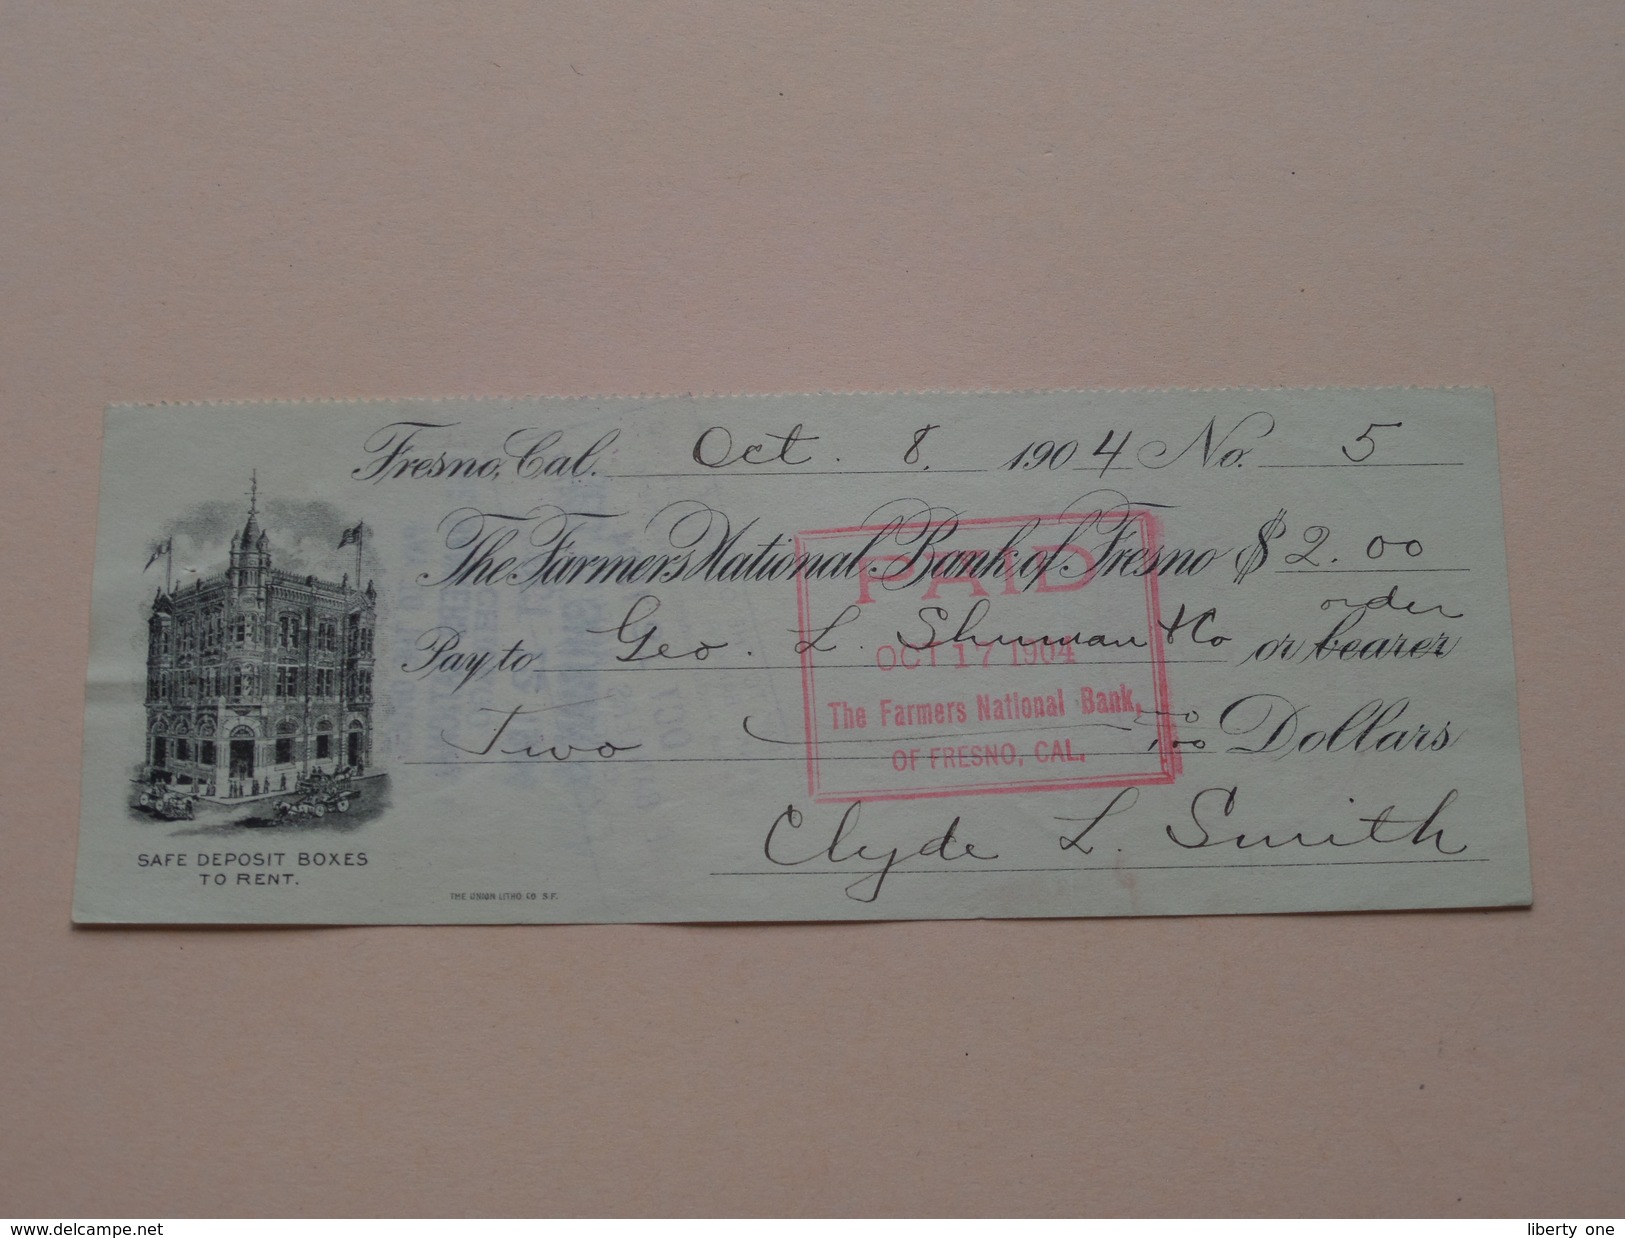 Fresno, Cal. Oct. 8. 1904 No. 5
The Farmers National Bank of Fresno $ 2.00
order
Pay to Geo. L. Shuman & Co or bearer
Two 00/100 Dollars
Clyde L. Smith
PAID
OCT 17 1904
The Farmers National Bank,
OF FRESNO, CAL.
SAFE DEPOSIT BOXES
TO RENT.
THE UNION LITHO. CO. S.F.
www.delcampe.net
liberty one